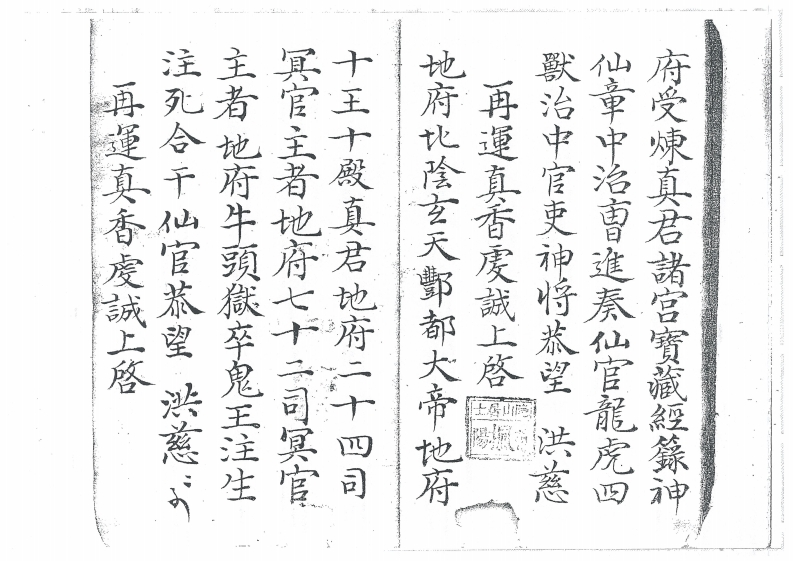 府受煉真君諸宮寶藏經籙神
仙章中治曺進奏仙官龍虎四
獸治中官吏神将恭望　洪慈
一再運真香虔誠上啓
地府北陰玄天酆都大帝地府
十王十殿真君地府二十四司
冥官主者地府七十二司冥官
主者地府牛頭獄卒鬼王注生
注死合干仙官恭望　洪慈
再運真香虔誠上啓